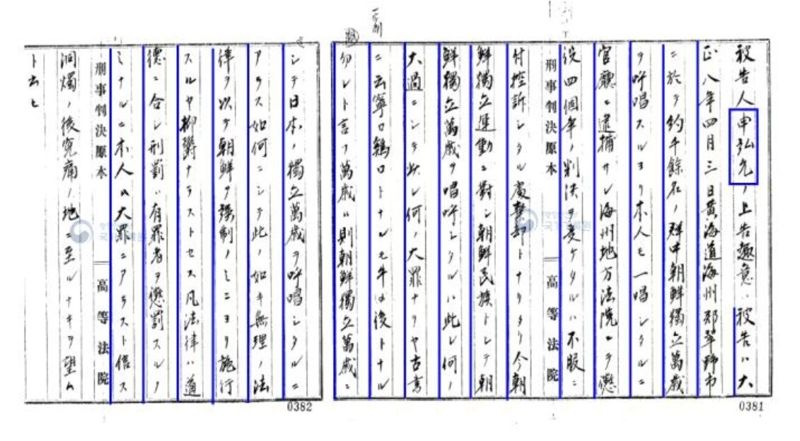 被告人申弘允ノ上告趣意ハ被告ハ大
正八年四月三日黄海道海州郡翠野市
ニ於テ約千餘名ノ群中朝鮮獨立萬歳
ヲ呼唱スルヨリ本人モ一唱シタルニ
官廳ニ逮捕サレ海州地方法院ニテ懲
役四個年ノ判決ヲ受ケタルハ不服ニ
刑事判決原本 高等法院
付控訴シタル處棄却トナリタリ今朝
鮮獨立運動ニ對シ朝鮮民族トシテ朝
鮮獨立萬歳ヲ唱呼シタルハ此レ何ノ
大過ニシテ此レ何ノ大罪ナリヤ古書
ニ云寧ロ鷄口トナルモ牛後トナル
勿レト言フ萬歳ハ則朝鮮獨立萬歳ニ
0381
シテ日本ノ獨立萬歳ヲ呼唱シタルニ
アラス如何ニシテ此ノ如キ無理ノ法
律ヲ以テ朝鮮ヲ強制ノミニヨリ施行
スルヤ抑欝ナラストセス凡法律ハ道
德ニ合シ刑罰ハ有罪者ヲ懲罰スルノ
ミナルニ本人ハ大罪ニアラスト信ス
刑事判決原本 高等法院
洞燭ノ後寃痛ノ地ニ至ルナキヲ望ム
ト云フ
0382